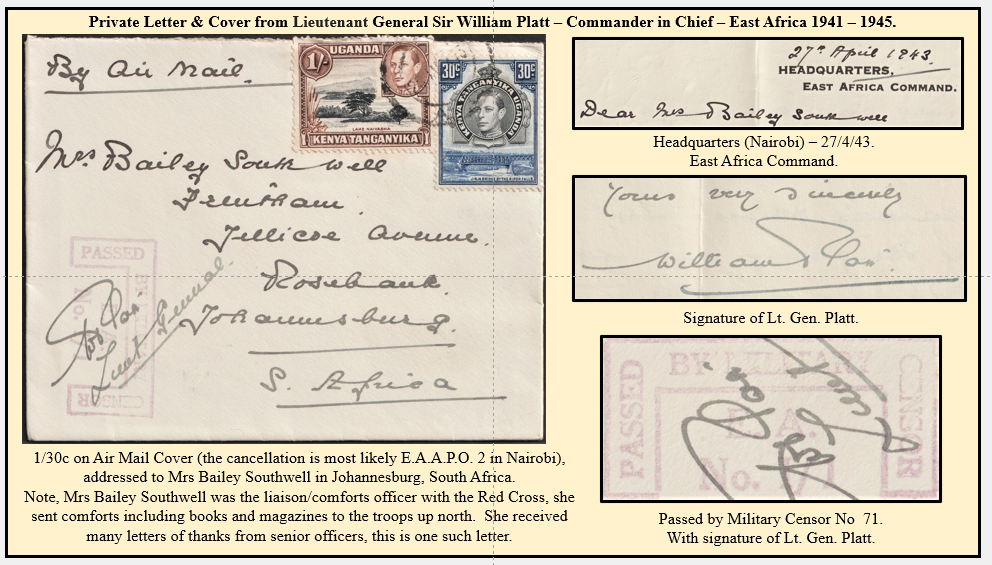 Private Letter & Cover from Lieutenant General Sir William Platt – Commander in Chief – East Africa 1941 – 1945.
By Air Mail.
UGANDA
1/-
LAKE NAIVASHA
KENYA TANGANYIKA
30c 30c
KENYA TANGANYIKA UGANDA
Mrs Bailey Southwell
Jellicoe Avenue.
Rosebank.
Johannesburg.
S. Africa
PASSED
No.
CENSOR
Lieut General.
1/30c on Air Mail Cover (the cancellation is most likely E.A.A.P.O. 2 in Nairobi),
addressed to Mrs Bailey Southwell in Johannesburg, South Africa.
Note, Mrs Bailey Southwell was the liaison/comforts officer with the Red Cross, she
sent comforts including books and magazines to the troops up north.  She received
many letters of thanks from senior officers, this is one such letter.
27th April 1943.
HEADQUARTERS,
EAST AFRICA COMMAND.
Dear Mrs Bailey Southwell
Headquarters (Nairobi) – 27/4/43.
East Africa Command.
Yours very sincerely
William Platt.
Signature of Lt. Gen. Platt.
PASSED
BY MILITARY
CENSOR
E.A.
No.
Passed by Military Censor No  71.
With signature of Lt. Gen. Platt.